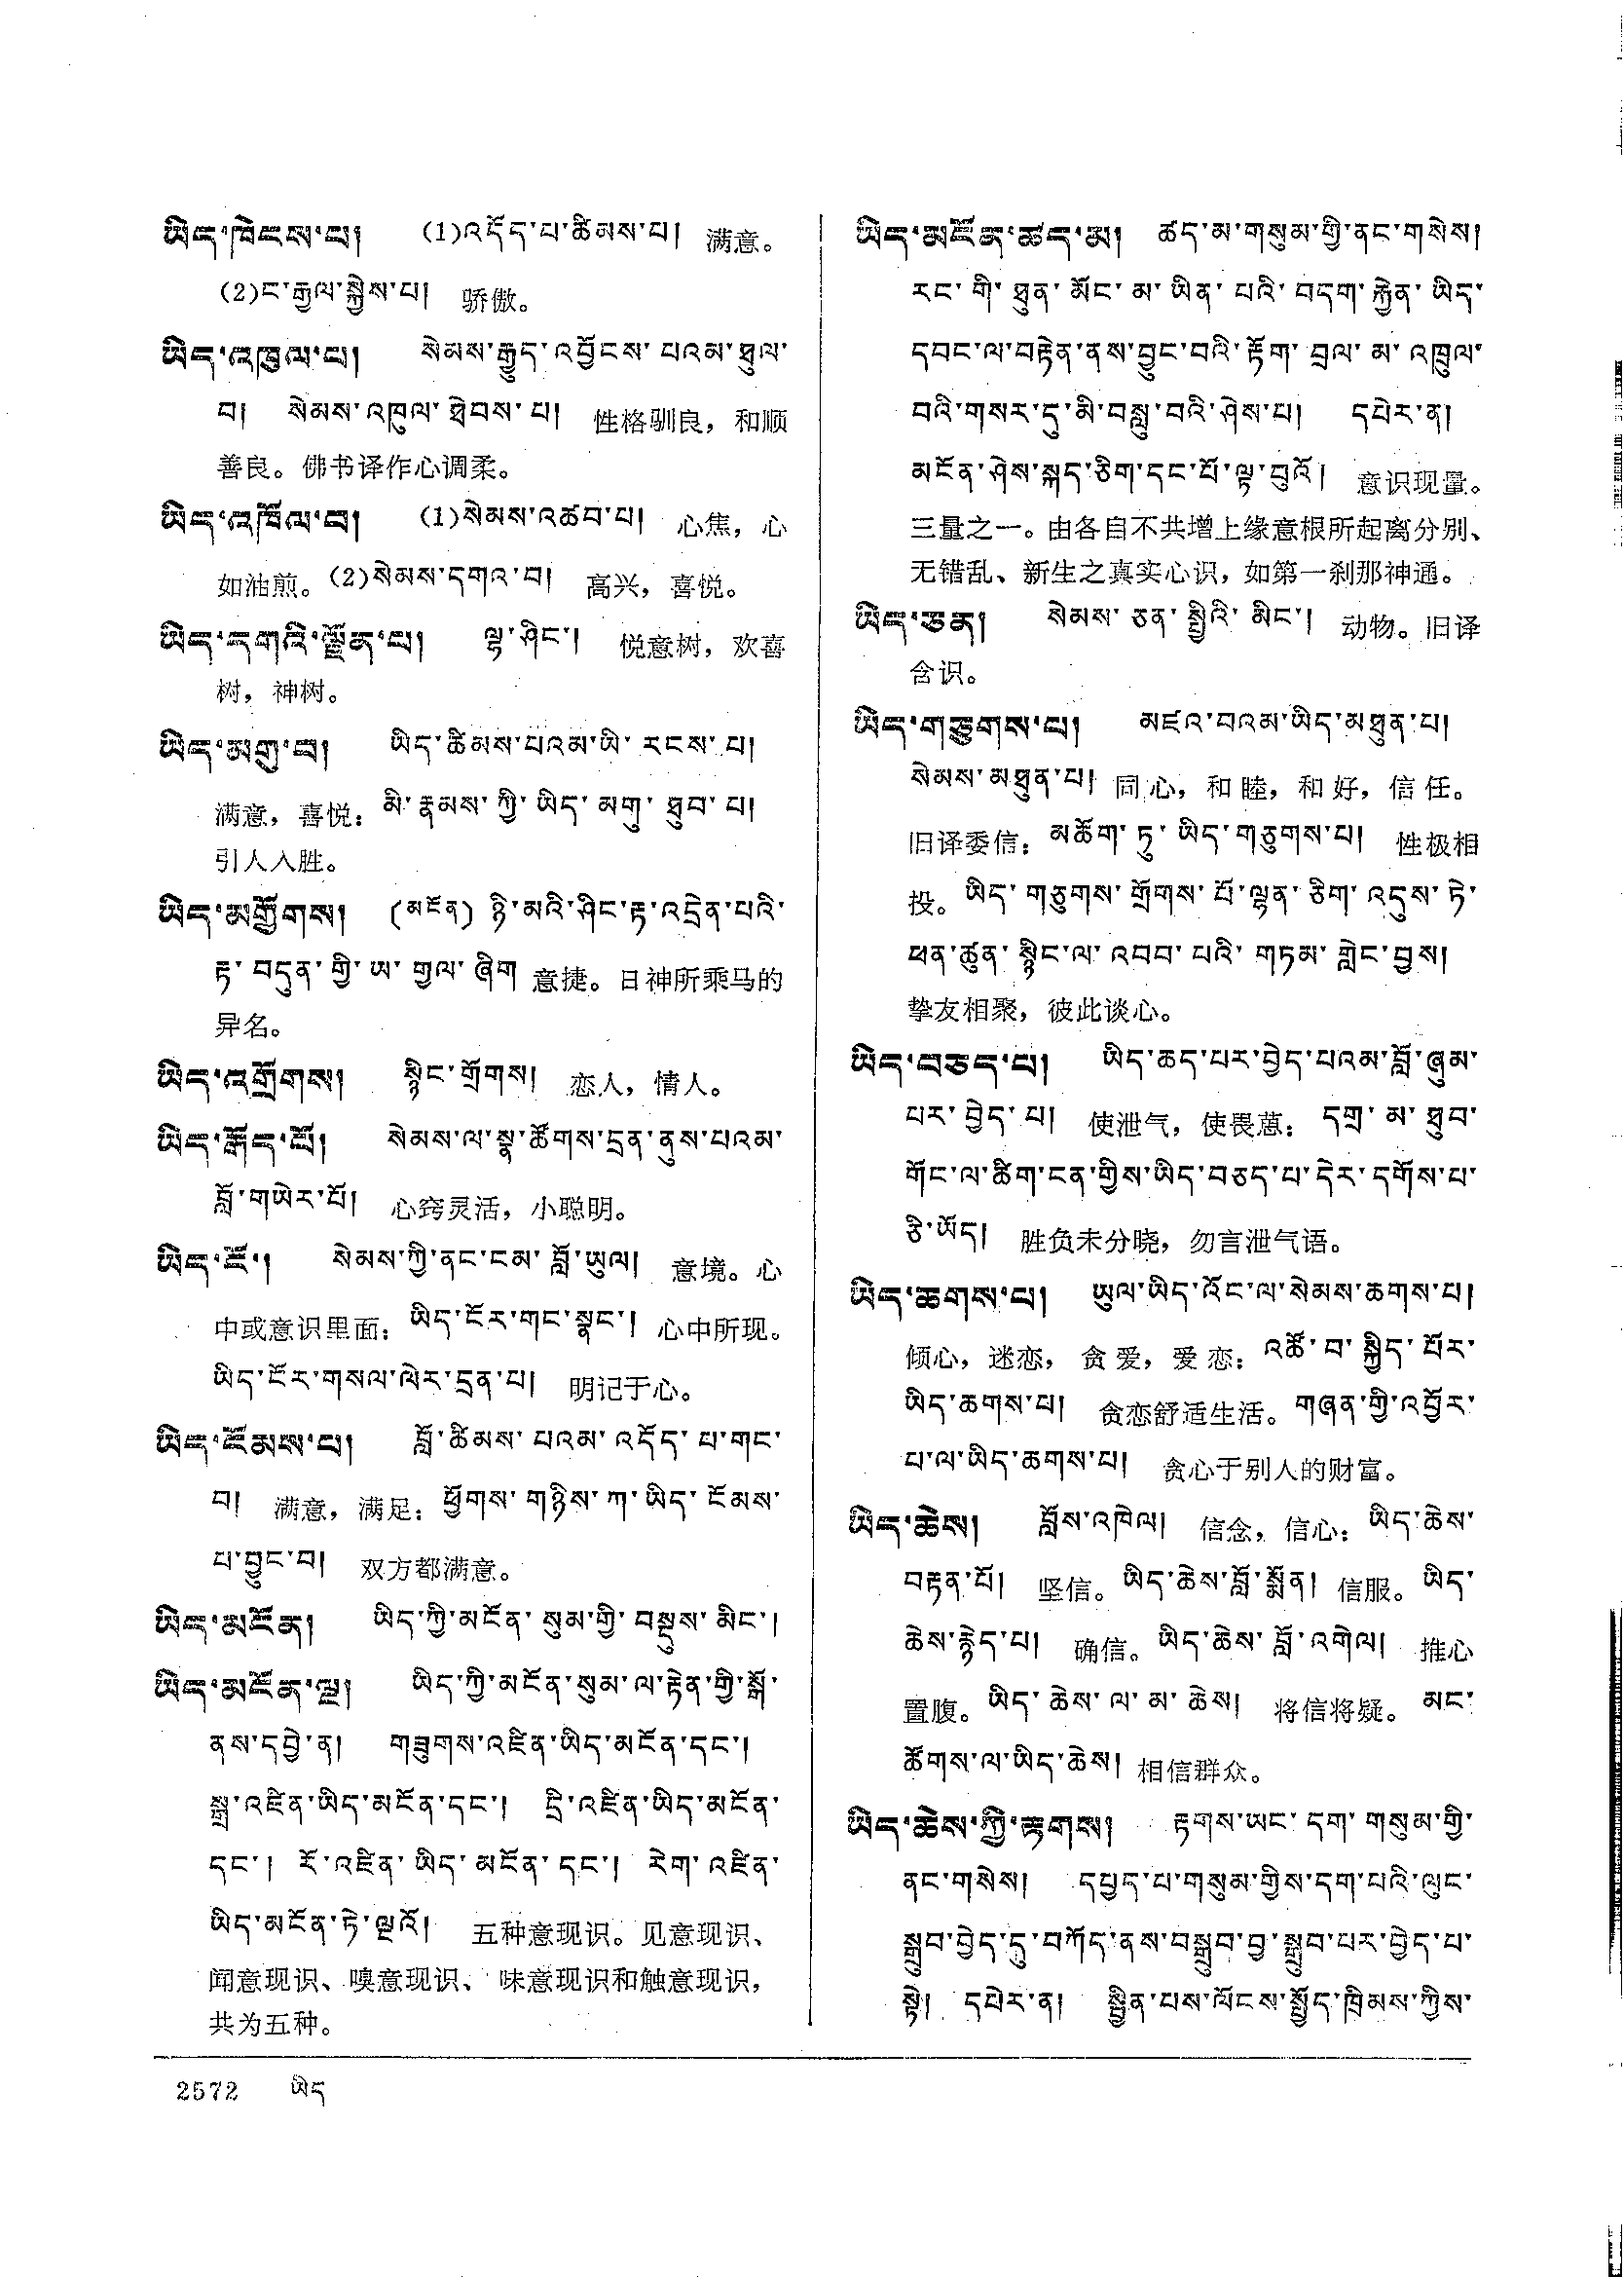 ཡིད་ཁེངས་པ། (1)འདོད་པ་ཚིམས་པ། 满意。
(2)ང་རྒྱལ་སྐྱེས་པ། 骄傲。
ཡིད་འཁུལ་པ། སེམས་རྒྱུད་འབྱོངས་པའམ་ཐུལ་
བ། སེམས་འཁུལ་ཐེབས་པ། 性格驯良，和顺
善良。佛书译作心调柔。
ཡིད་འཁོལ་བ། (1)སེམས་འཚབ་པ། 心焦，心
如油煎。(2)སེམས་དགའ་བ། 高兴，喜悦。
ཡིད་དགའི་ལྗོན་པ། ལྷ་ཤིང་། 悦意树，欢喜
树，神树。
ཡིད་མགུ་བ། ཡིད་ཚིམས་པའམ་ཡི་རངས་པ།
满意，喜悦：མི་རྣམས་ཀྱི་ཡིད་མགུ་ཐུབ་པ།
引人入胜。
ཡིད་མགྱོགས། (མངོན) ཉི་མའི་ཤིང་རྟ་འདྲེན་པའི་
རྟ་བདུན་གྱི་ཨ་གྱལ་ཞིག 意捷。日神所乘马的
异名。
ཡིད་འགྲོགས། སྙིང་གྲོགས། 恋人，情人。
ཡིད་རྒོད་པོ། སེམས་ལ་སྣ་ཚོགས་དྲན་ནུས་པའམ་
བློ་གཡེར་པོ། 心窍灵活，小聪明。
ཡིད་ངོ་། སེམས་ཀྱི་ནང་ངམ་བློ་ཡུལ། 意境。心
中或意识里面：ཡིད་ངོར་གང་སྣང་། 心中所现。
ཡིད་ངོར་གསལ་ལེར་དྲན་པ། 明记于心。
ཡིད་ངོམས་པ། བློ་ཚིམས་པའམ་འདོད་པ་གང་
བ། 满意，满足：ཕྱོགས་གཉིས་ཀ་ཡིད་ངོམས་
པ་བྱུང་བ། 双方都满意。
ཡིད་མངོན། ཡིད་ཀྱི་མངོན་སུམ་གྱི་བསྡུས་མིང་།
ཡིད་མངོན་ལྔ། ཡིད་ཀྱི་མངོན་སུམ་ལ་རྟེན་གྱི་སྒོ་
ནས་དབྱེ་ན། གཟུགས་འཛིན་ཡིད་མངོན་དང་།
སྒྲ་འཛིན་ཡིད་མངོན་དང་། དྲི་འཛིན་ཡིད་མངོན་
དང་། རོ་འཛིན་ཡིད་མངོན་དང་། རེག་འཛིན་
ཡིད་མངོན་ཏེ་ལྔའོ། 五种意现识。见意现识、
闻意现识、嗅意现识、味意现识和触意现识，
共为五种。
ཡིད་མངོན་ཚད་མ། ཚད་མ་གསུམ་གྱི་ནང་གསེས།
རང་གི་ཐུན་མོང་མ་ཡིན་པའི་བདག་རྐྱེན་ཡིད་
དབང་ལ་བརྟེན་ནས་བྱུང་བའི་རྟོག་བྲལ་མ་འཁྲུལ་
བའི་གསར་དུ་མི་བསླུ་བའི་ཤེས་པ། དཔེར་ན།
མངོན་ཤེས་སྐད་ཅིག་དང་པོ་ལྟ་བུའོ། 意识现量。
三量之一。由各自不共增上缘意根所起离分别、
无错乱、新生之真实心识，如第一刹那神通。
ཡིད་ཅན། སེམས་ཅན་སྤྱིའི་མིང་། 动物。旧译
含识。
ཡིད་གཅུགས་པ། མཛའ་བའམ་ཡིད་མཐུན་པ།
སེམས་མཐུན་པ། 同心，和睦，和好，信任。
旧译委信：མཆོག་ཏུ་ཡིད་གཅུགས་པ། 性极相
投。ཡིད་གཅུགས་གྲོགས་པོ་ལྷན་ཅིག་འདུས་ཏེ་
ཕན་ཚུན་སྙིང་ལ་འབབ་པའི་གཏམ་གླེང་བྱས།
挚友相聚，彼此谈心。
ཡིད་བཅད་པ། ཡིད་ཆད་པར་བྱེད་པའམ་བློ་ཞུམ་
པར་བྱེད་པ། 使泄气，使畏葸：དགྲ་མ་ཐུབ་
གོང་ལ་ཚིག་ངན་གྱིས་ཡིད་བཅད་པ་དེར་དགོས་པ་
ཅི་ཡོད། 胜负未分晓，勿言泄气语。
ཡིད་ཆགས་པ། ཡུལ་ཡིད་འོང་ལ་སེམས་ཆགས་པ།
倾心，迷恋，贪爱，爱恋：འཚོ་བ་སྐྱིད་པོར་
ཡིད་ཆགས་པ། 贪恋舒适生活。གཞན་གྱི་འབྱོར་
པ་ལ་ཡིད་ཆགས་པ། 贪心于别人的财富。
ཡིད་ཆེས། བློས་འཁེལ། 信念，信心：ཡིད་ཆེས་
བརྟན་པོ། 坚信。ཡིད་ཆེས་བློ་སྨོན། 信服。ཡིད་
ཆེས་རྙེད་པ། 确信。ཡིད་ཆེས་བློ་འགེལ། 推心
置腹。ཡིད་ཆེས་ལ་མ་ཆེས། 将信将疑。མང་
ཚོགས་ལ་ཡིད་ཆེས། 相信群众。
ཡིད་ཆེས་ཀྱི་རྟགས། རྟགས་ཡང་དག་གསུམ་གྱི་
ནང་གསེས། དཔྱད་པ་གསུམ་གྱིས་དག་པའི་ལུང་
སྒྲུབ་བྱེད་དུ་བཀོད་ནས་བསྒྲུབ་བྱ་སྒྲུབ་པར་བྱེད་པ་
སྟེ། དཔེར་ན། སྦྱིན་པས་ལོངས་སྤྱོད་ཁྲིམས་ཀྱིས་
2572 ཡིད